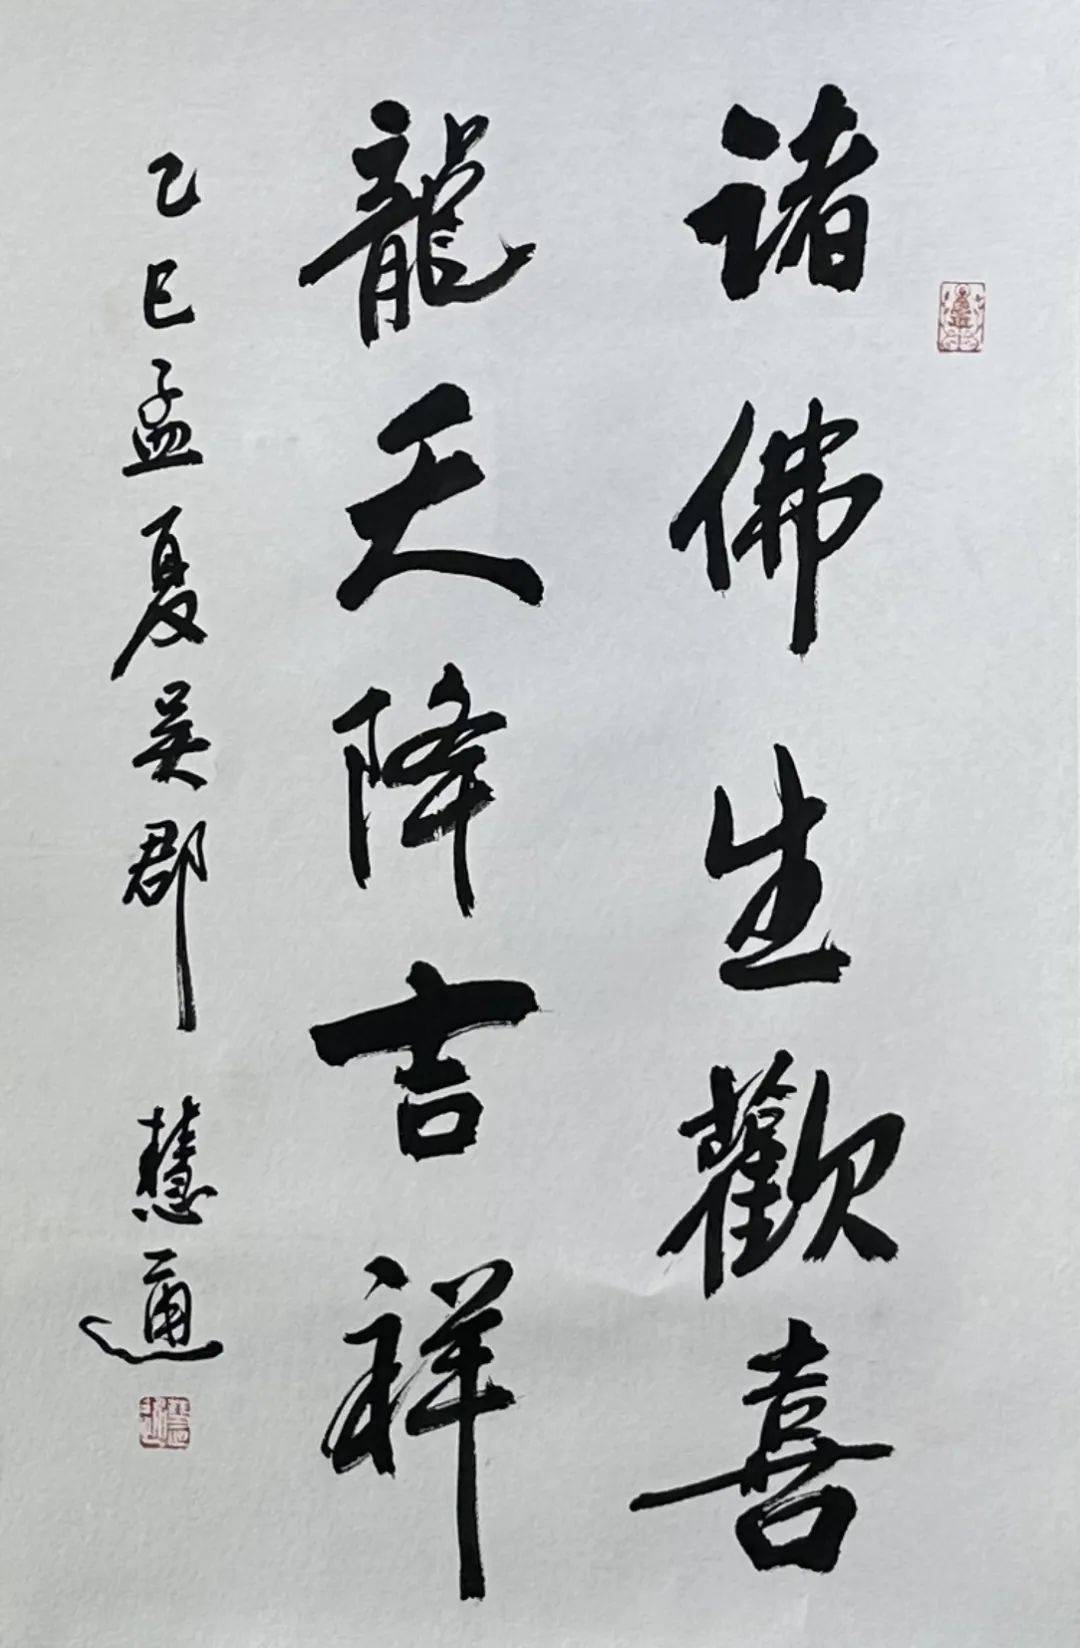 诸佛生歡喜
龍天降吉祥
乙巳孟夏吴郡 慧通